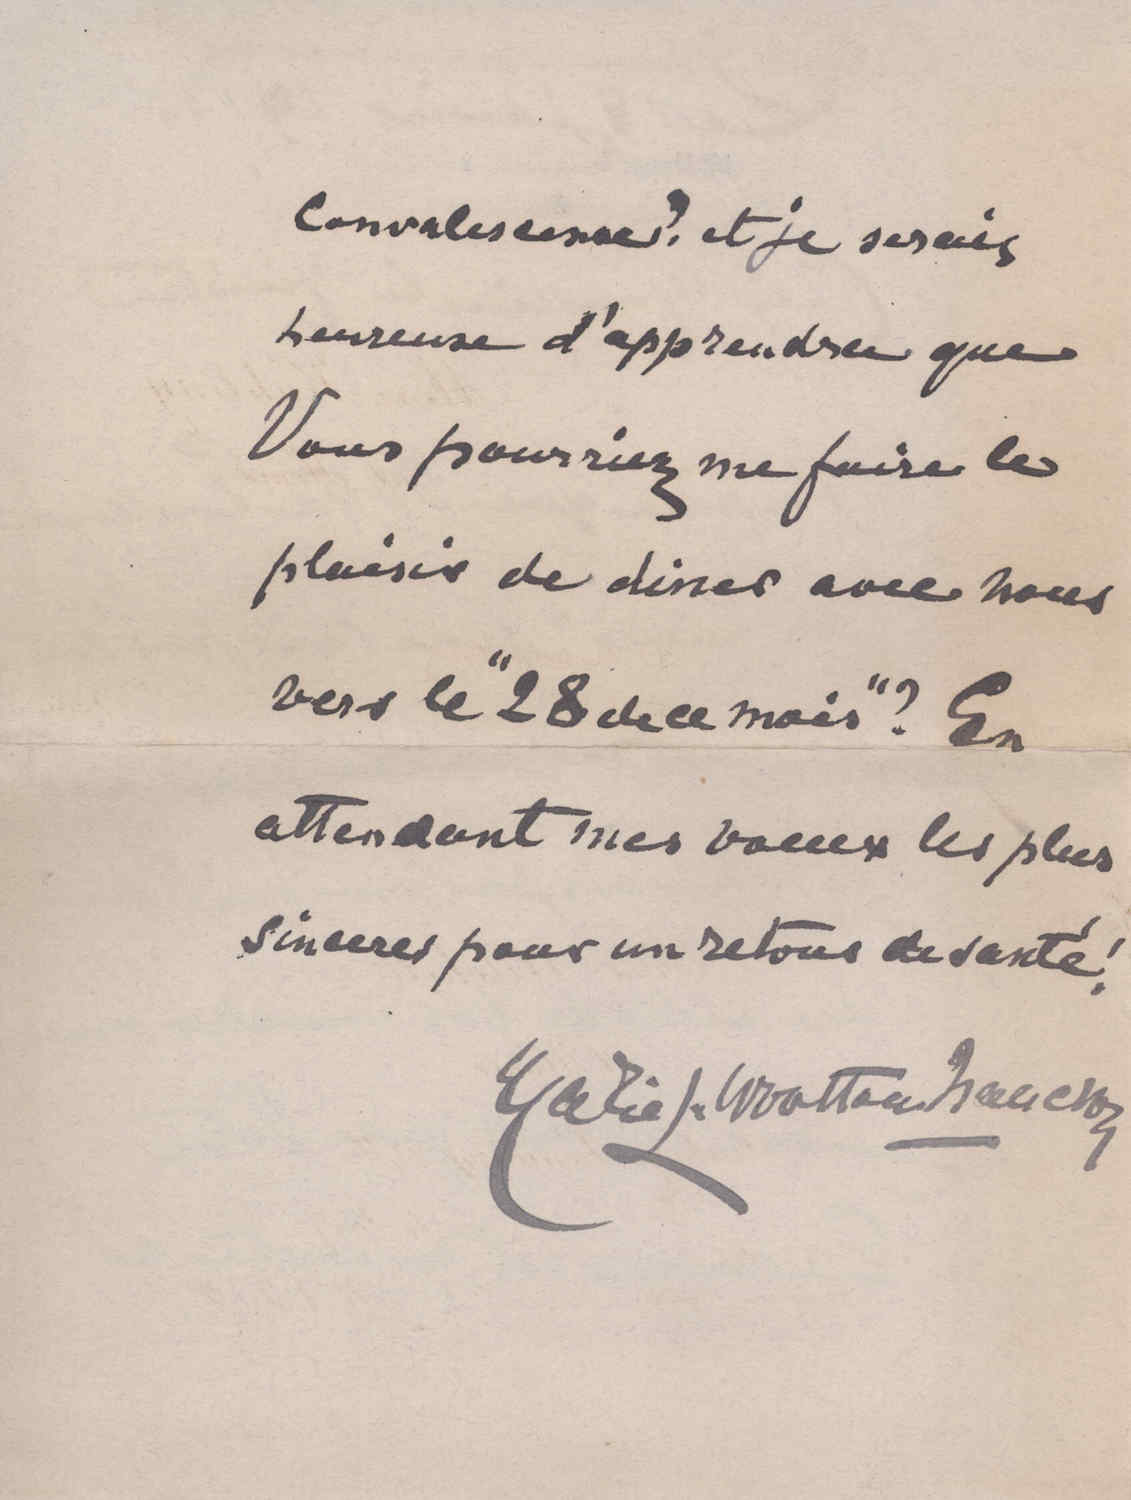 Convalescence? et je serais
heureuse d'apprendre que
Vous pourriez me faire le
plaisir de diner avec nous
vers le "28 de ce mois"? En
attendant mes voeux les plus
sinceres pour un retour de santé!
Wootton